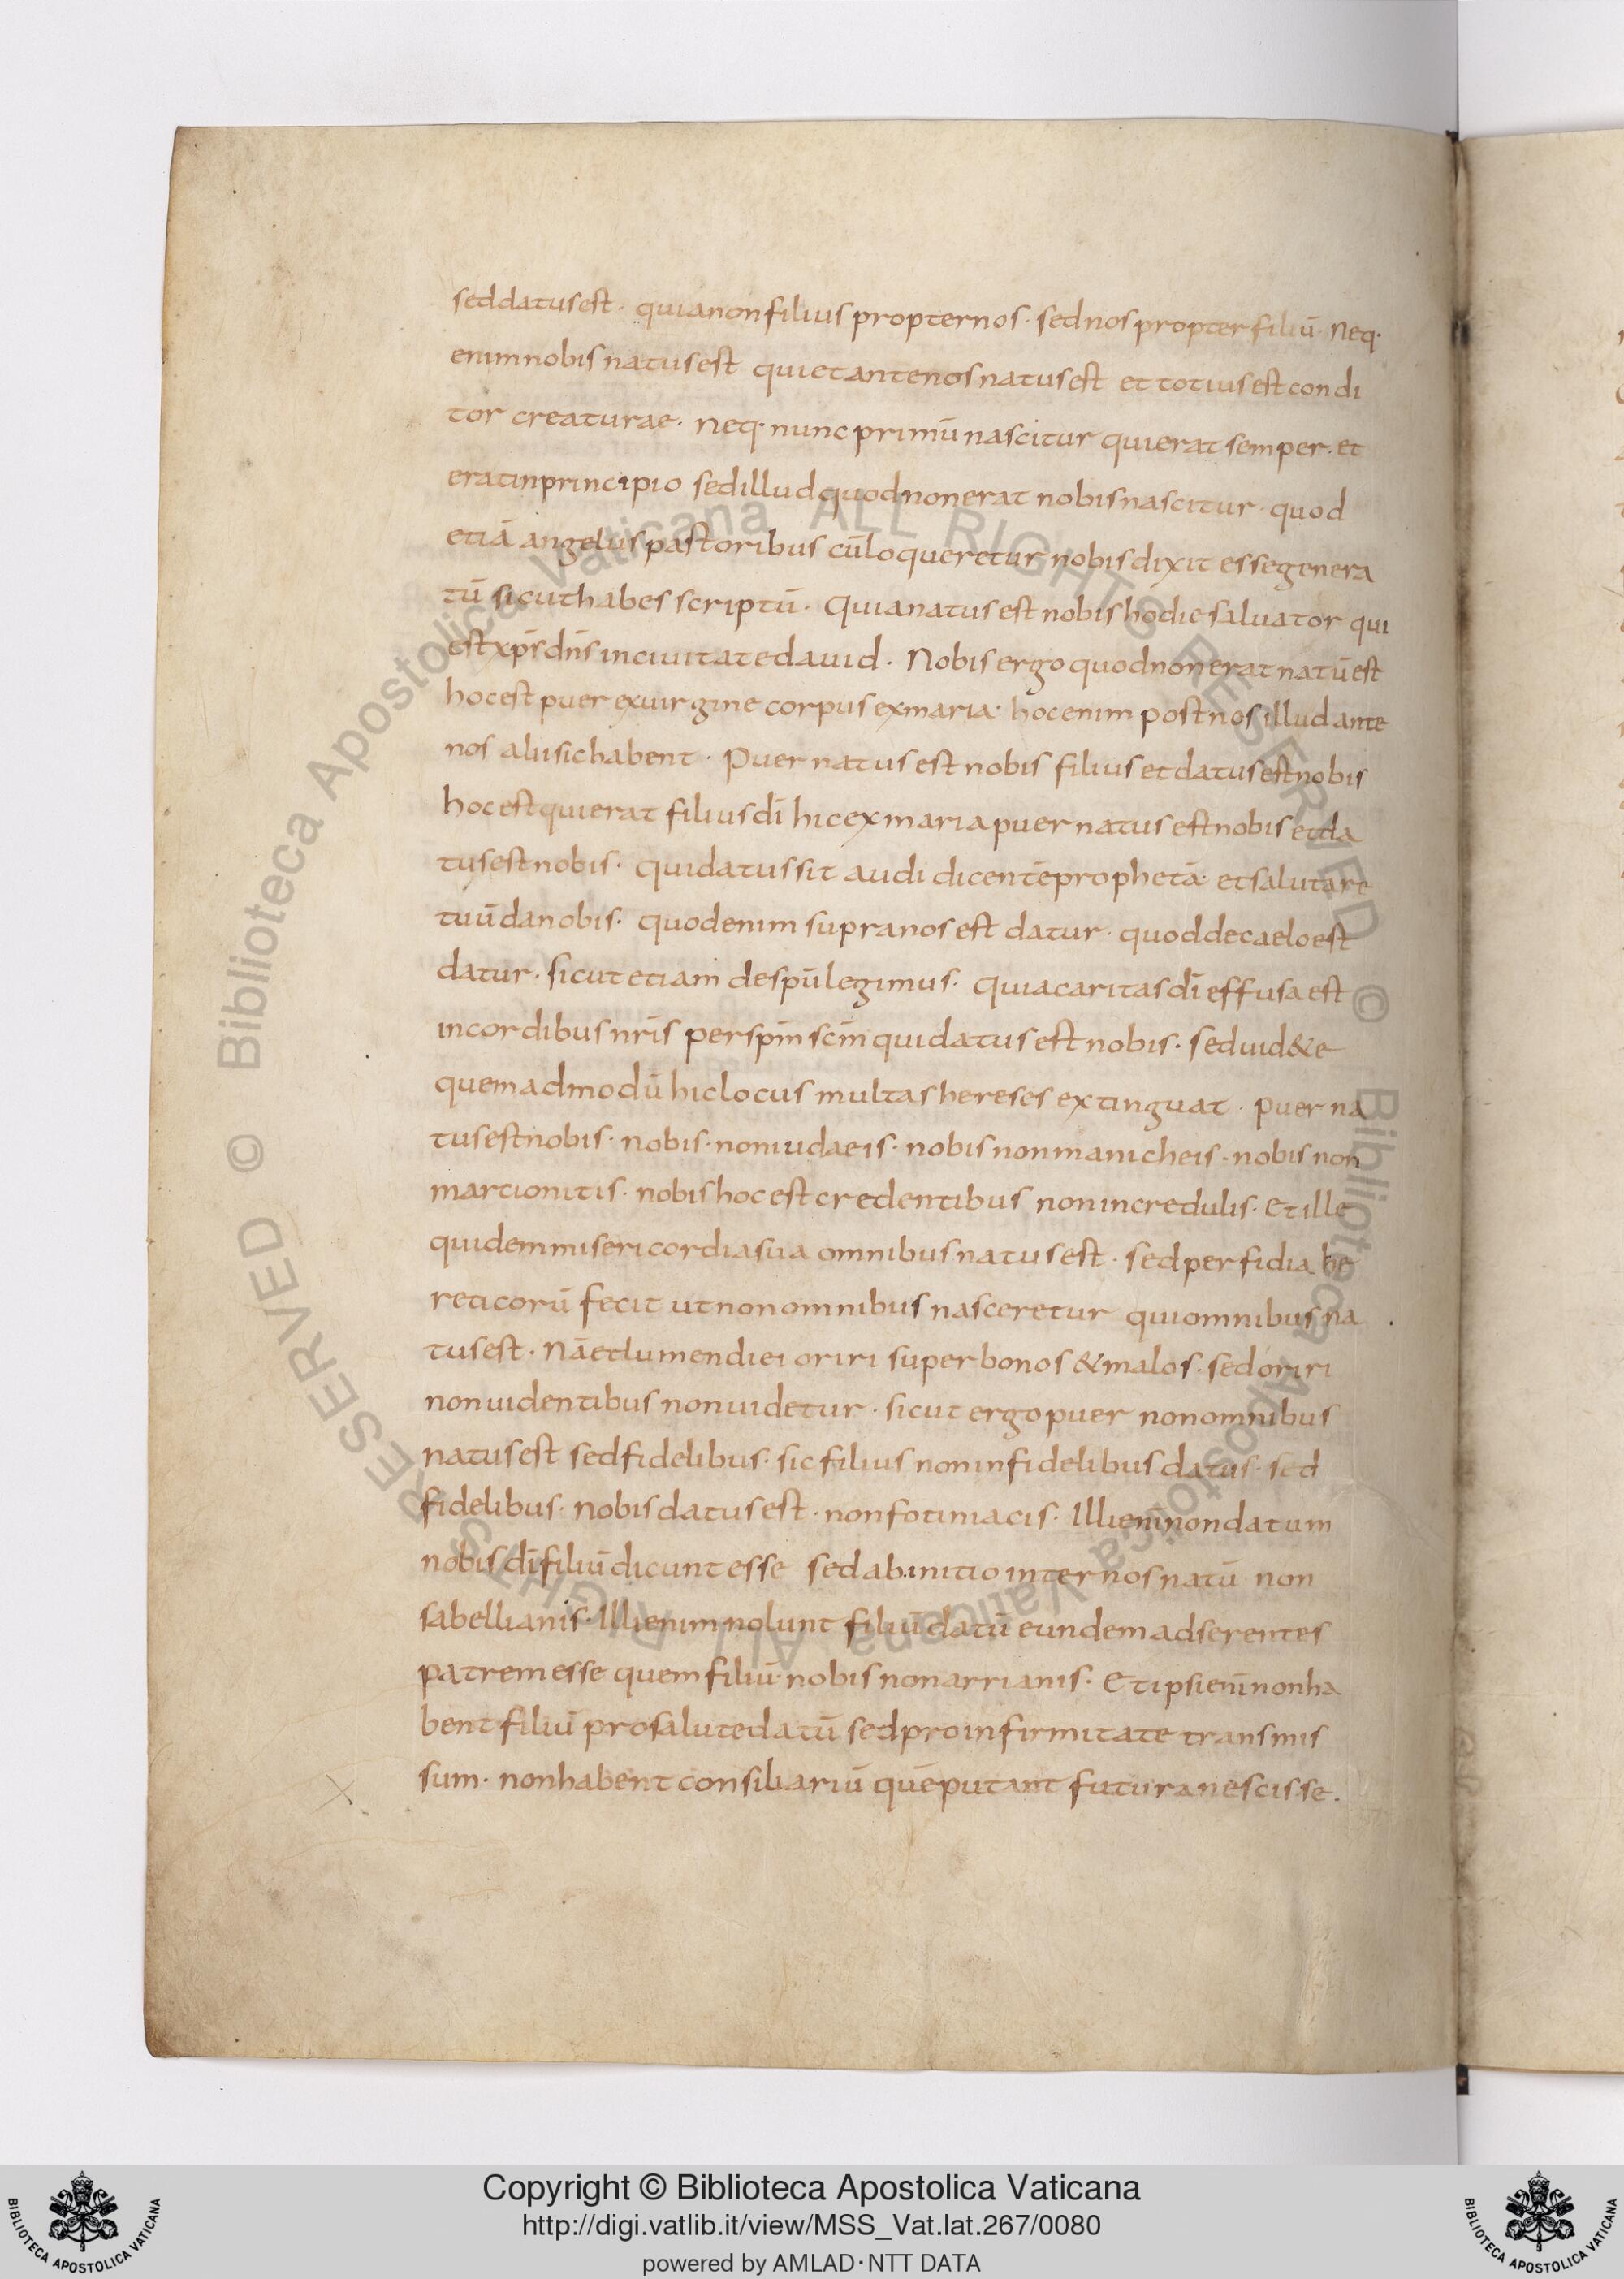 seddatusest· quianonfilius propternos· sednos propter filiū Neq·
enimnobis natusest quietantenos natusest et totiusest condi
tor creaturae· Neq· nunc primū nascitur quierat semper· et
eratinprincipio sedilludquodnonerat nobisnascitur· quod
etiā angelus pastoribus cūloqueretur nobisdixit essegenera
tū sicuthabes scriptū· Quianatus est nobis hodie saluator qui
est xp̄s dn̄s inciuitatedauid· Nobis ergo quodnonerat natūest
hocest puer exuirgine corpus exmaria· hocenim postnos illud ante
nos aliisichabent· Puer natus est nobis filius etdatusestnobis
hocestquierat filiusdī hicexmariapuer natus estnobis etda
tusestnobis· Quidatussit audi dicentēprophetā· etsalutare
tuū danobis· Quodenim supranos est datur· quoddecaeloest
datur· sicutetiam despūlegimus· Quiacaritasdī effusa est
incordibus nrīs perspm̄ scm̄ quidatus est nobis· seduid&e
quemadmodū hiclocus multashereses extinguat· puer na
tusestnobis· nobis· noniudaeis· nobis nonmanicheis· nobis non
martionitis· nobishocest credentibus nonincredulis· Et ille
quidemmisericordiasua omnibus natusest· sedperfidia he
reticorū fecit utnonomnibus nasceretur quiomnibus na
tusest· Nāetlumendiei oriri superbonos &malos· sedoriri
nonuidentibus nonuidetur· sicut ergo puer nonomnibus
natusest sedfidelibus· sic filius noninfidelibus datus· sed
fidelibus· Nobisdatusest· nonfotiniacis· Illienīnondatum
nobis dīfiliū dicunt esse sedabinitio internos natū non
sabellianis· Illienim nolunt filiū datū eundemadserentes
patremesse quemfiliū· nobis nonarrianis· Etipsienīnonha
bent filiū prosalutedatū sedproinfirmitate transmis
sum· nonhabent consiliariū quēputant futuranescisse.
Copyright © Biblioteca Apostolica Vaticana
http://digi.vatlib.it/view/MSS_Vat.lat.267/0080
powered by AMLAD·NTT DATA
BIBLIOTECA APOSTOLICA VATICANA
BIBLIOTECA APOSTOLICA VATICANA
© Biblioteca Apostolica Vaticana ALL RIGHTS RESERVED
© Biblioteca Apostolica Vaticana ALL RIGHTS RESERVED